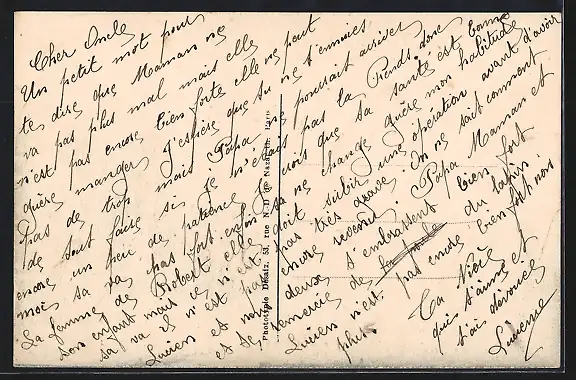 Cher Oncle
Un petit mot pour
te dire que Maman ne
va pas plus mal mais elle
n'est pas encore bien forte elle ne peut
guère manger J'espère que tu ne t'ennuies
pas de trop mais Papa ne pourrait arriver
de tout faire si je n'étais pas là Prends donc
encore un peu de patience je crois que ta santé est bonne
moi sa va pas fort enfin sa ne change guère mon habitude
La femme de Robert elle doit subir une opération avant d'avoir
son enfant mais ce n'est pas très grave. On ne sait comment
sa va s'il n'est pas encore revenu. Papa Maman et
Lucien et nous deux t'embrassent bien fort
et te remercie de du lapin
Lucien n'est pas encore bien fort non
plus.
Ta Nièce
qui t'aime et
t'ai dévouée
Lucienne
Phototypie Désaix, 53, rue N.-D. de Nazareth. Paris